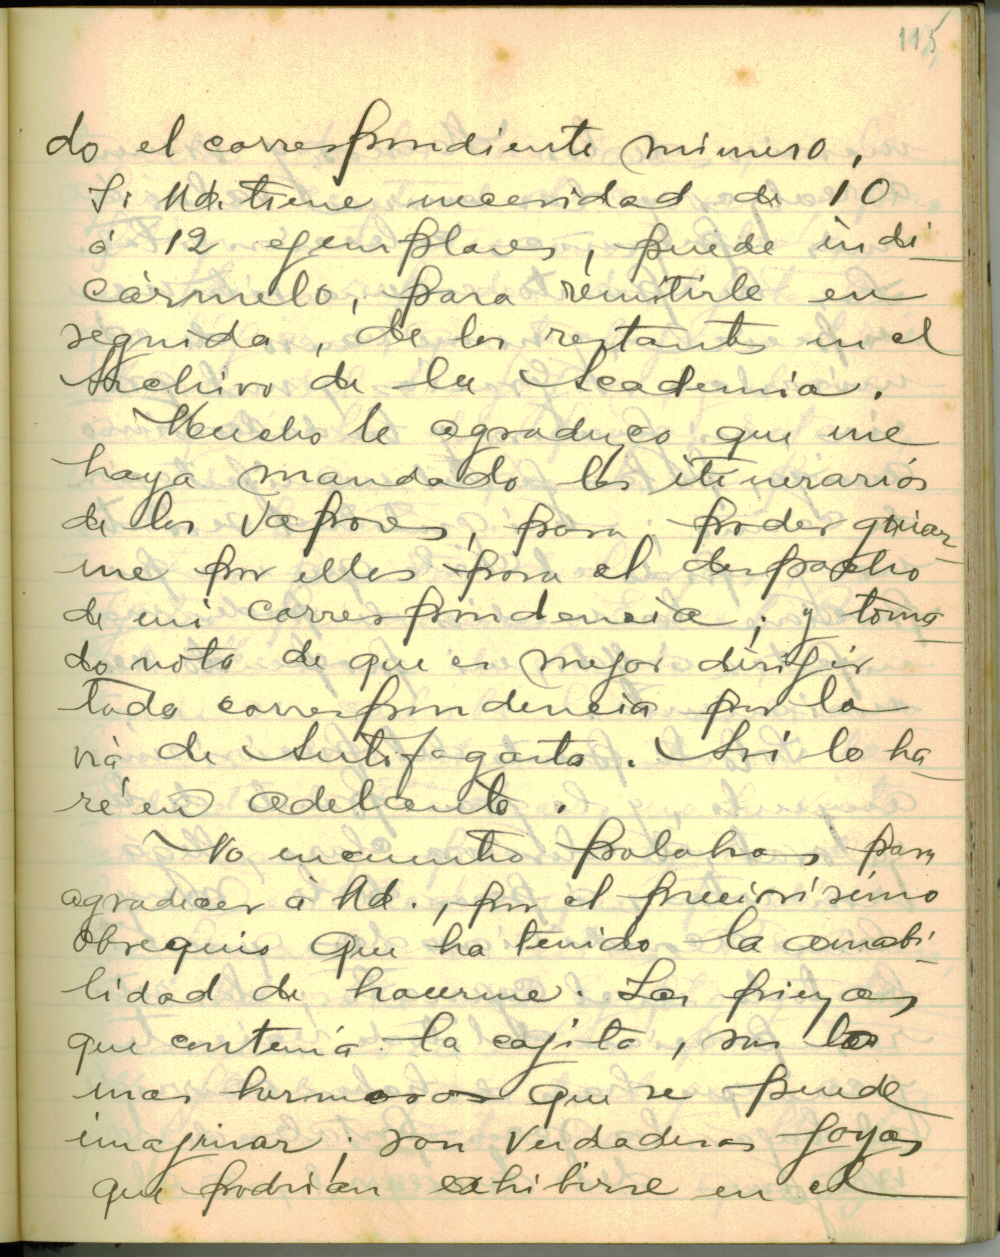 115
do el correspondiente número.
Si Ud. tiene necesidad de 10
á 12 ejemplares, puede indi-
cármelo, para remitirle en
seguida, de los restantes en el
Archivo de la Academia.
Mucho le agradezco que me
haya mandado los itinerarios
de los vapores, para poder guiar-
me por ellos para el despacho
de mi correspondencia; y toma-
do nota de que es mejor dirigir
toda correspondencia por la
viá de Antofagasta. Asi lo ha-
ré en adelante.
No encuentro palabras para
agradecer á Ud., por el preciosísimo
obsequio que ha tenido la amabi-
lidad de hacerme. Las piezas
que contenía la cajita, son las
mas hermosas que se puede
imaginar; son verdaderas joyas
que podrían exhibirse en el